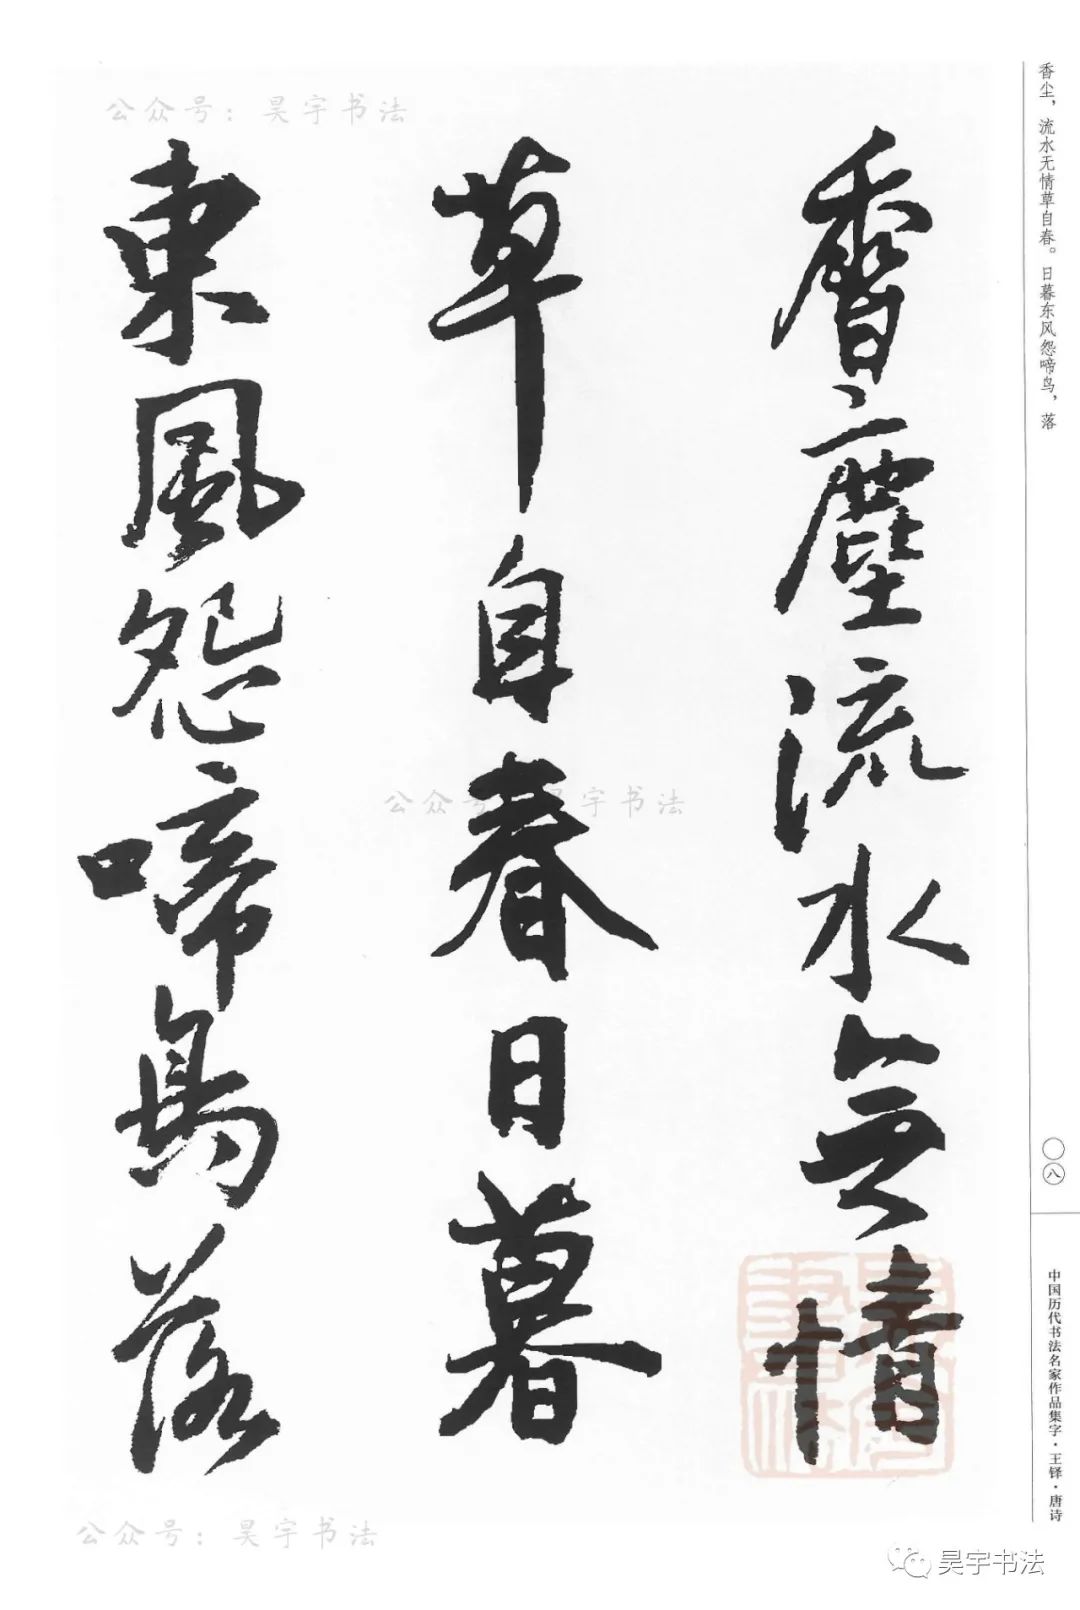 公众号：昊宇书法
香尘，流水无情草自春。日暮东风怨啼鸟，落
香塵流水無情
草自春日暮
東風怨啼鳥落
公众号：昊宇书法
〇八
中国历代书法名家作品集字·王铎·唐诗
公众号：昊宇书法
昊宇书法